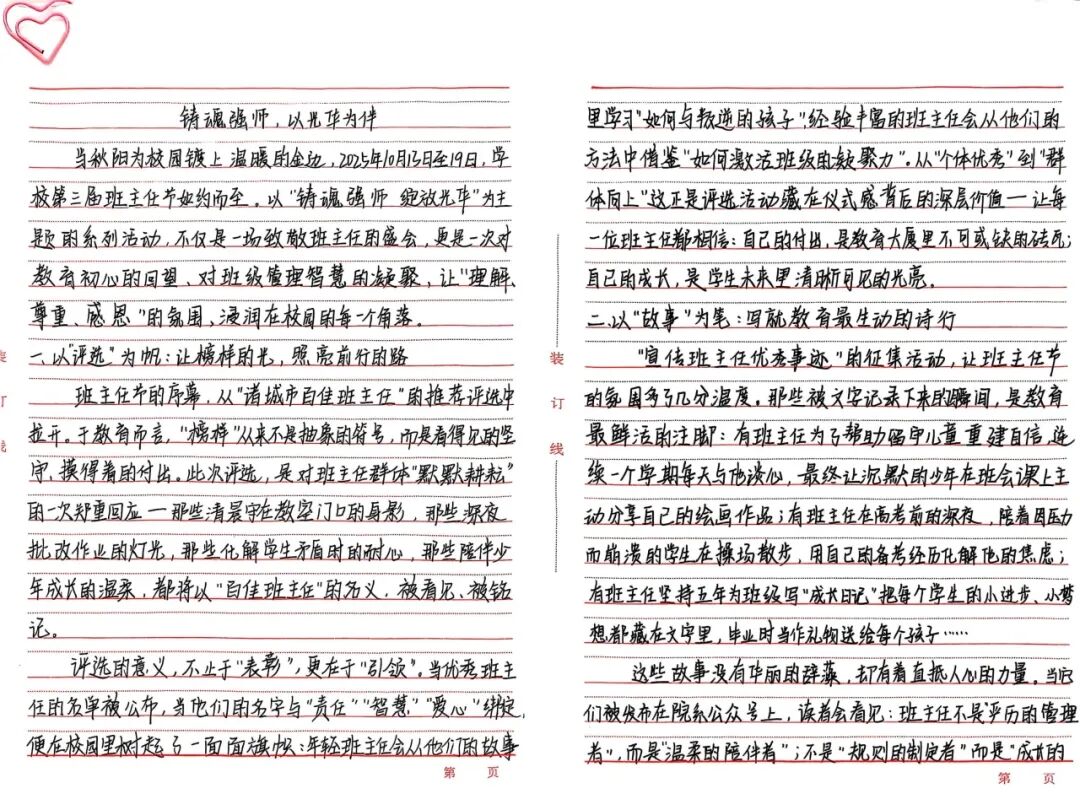 铸魂强师，以光华为伴
当秋阳为校园镀上温暖的金边，2025年10月13日至19日，学
校第三届班主任节如约而至。以"铸魂强师 绽放光华"为主
题的系列活动，不仅是一场致敬班主任的盛会，更是一次对
教育初心的回望、对班级管理智慧的凝聚，让"理解、
尊重、感恩"的氛围，浸润在校园的每一个角落。
一、以"评选"为帆：让榜样的光，照亮前行的路
班主任节的序幕，从"诸城市百佳班主任"的推荐评选中
拉开。于教育而言，"榜样"从来不是抽象的符号，而是看得见的坚
守、摸得着的付出。此次评选，是对班主任群体"默默耕耘"
的一次郑重回应——那些清晨守在教室门口的身影，那些深夜
批改作业的灯光，那些化解学生矛盾时的耐心，那些陪伴少
年成长的温柔，都将以"百佳班主任"的名义，被看见、被铭
记。
评选的意义，不止于"表彰"，更在于"引领"。当优秀班主
任的名单被公布，当他们的名字与"责任""智慧""爱心"绑定，
便在校园里树起了一面面旗帜：年轻班主任会从他们的故事
第 页
里学习"如何与叛逆的孩子"，经验丰富的班主任会从他们的
方法中借鉴"如何激活班级的凝聚力"。从"个体优秀"到"群
体向上"这正是评选活动藏在仪式感背后的深层价值——让每
一位班主任都相信：自己的付出，是教育大厦里不可或缺的砖瓦；
自己的成长，是学生未来里清晰可见的光亮。
二、以"故事"为笔：写就教育最生动的诗行
"宣传班主任优秀事迹"的征集活动，让班主任节
的氛围多了几分温度。那些被文字记录下来的瞬间，是教育
最鲜活的注脚：有班主任为了帮助留守儿童重建自信，连
续一个学期每天与他谈心，最终让沉默的少年在班会课上主
动分享自己的绘画作品；有班主任在高考前的深夜，陪着因压力
而崩溃的学生在操场散步，用自己的备考经历化解他的焦虑；
有班主任坚持五年为班级写"成长日记"把每个学生的小进步、小梦
想都藏在文字里，毕业时当作礼物送给每个孩子……
这些故事没有华丽的辞藻，却有着直抵人心的力量。当它
们被发布在院系公众号上，读者会看见：班主任不是"严厉的管理
者"，而是"温柔的陪伴者"；不是"规则的制定者"而是"成长的
第 页
装
订
线
装
订
线